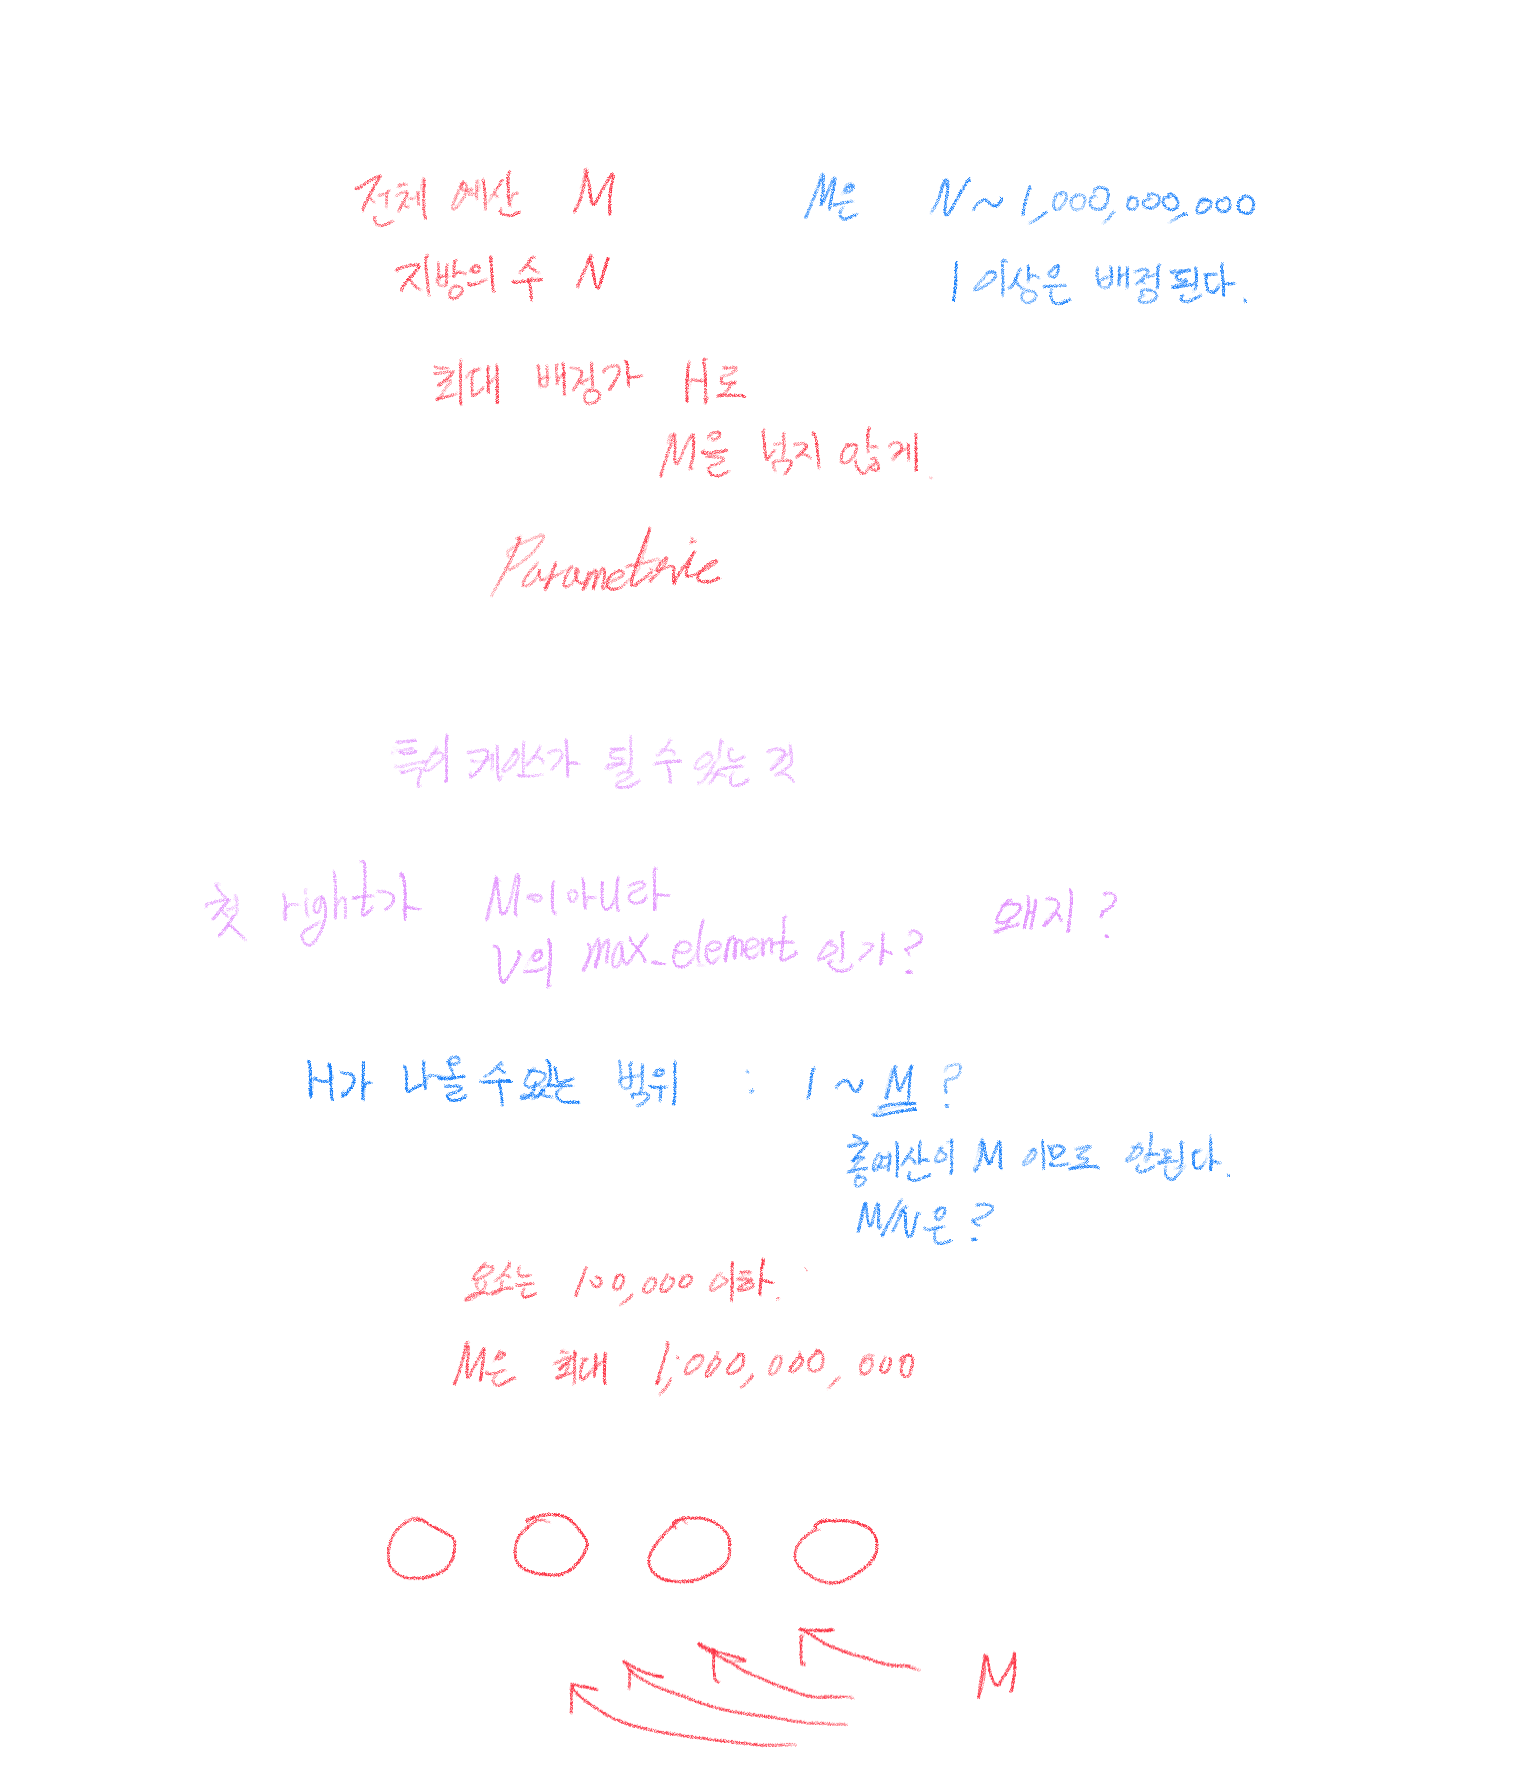 전체 예산 M
M은 N ~ 1,000,000,000
지방의 수 N
1 이상은 배정된다.
최대 배정가 H로
M을 넘지 않게.
Parametric
투어 케이스가 될 수 있는 것
첫 right가 M이 아니라
왜지?
V의 max_element 인가?
H가 나올 수 있는 범위 : 1 ~ M ?
총예산이 M 이므로 안된다.
M/N은?
요소는 100,000 이하.
M은 최대 1,000,000,000
M